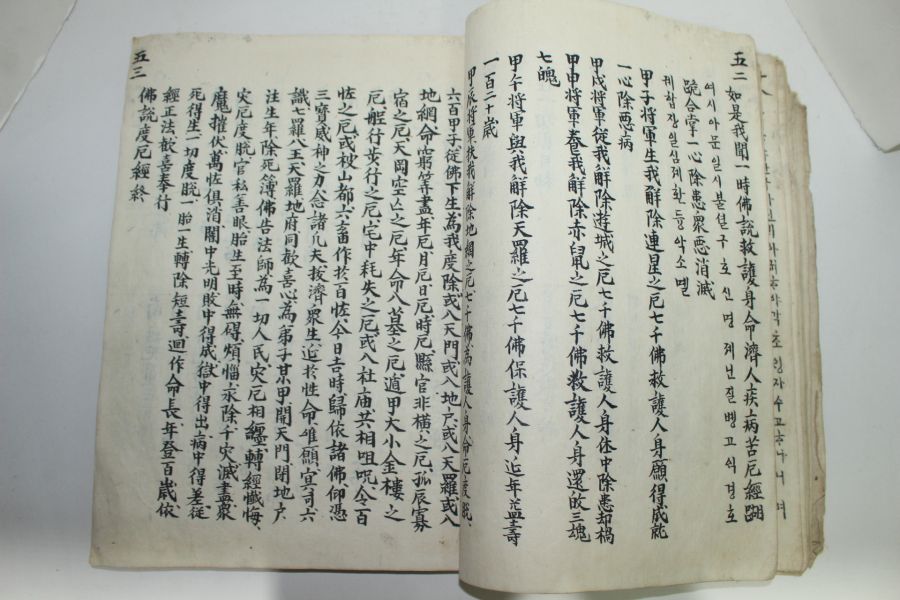 五二
如是我聞一時佛說救護身命濟人疾病苦厄經踋
여시아문 일시불설구호신명제난질병고식경호
跪合掌一心除患衆悪消滅
궤합장일심제환듕악소멸
甲子將軍生我解除連星之厄七千佛救護人身願得成就
一心除悪病
甲戌將軍從我解除遊城之厄七千佛救護人身体中除患却禍
甲申將軍養我解除赤鼠之厄七千佛救護人身還皈三魂
七魄
甲午將軍與我解除天羅之厄七千佛保護人身延年益壽
一百二十歲
甲辰將軍扶我解除地網之厄七千佛爲護人身命厄度脫
五三
六百甲子從佛下生爲我度除或八天門或八地戶或八天羅或八
地網命窮筭盡年厄月厄日厄時厄縣官非橫之厄孤辰寡
宿之厄天岡空亡之厄年命八墓之厄遁甲大小金樓之
厄船行步行之厄宅中耗失之厄或八社庙共相咀呪今百
怪之厄或被山都六畜作於百怪今日吉時歸依諸佛仰憑
三寶威神之力念諸凡夫拔濟衆生延於性命唯願冥司六
識七羅八王天羅地府同歡喜心爲弟子某甲開天門閉地戶
注生年除死簿佛告法師爲一切人民灾厄相纒轉經懺悔
灾厄度脫官私善眼胎生至時無碍煩惱永除千灾滅盡衆
魔摧伏萬怪俱消闇中光明敗中得成獄中得出病中得差從
死得生一切度脫一胎一生轉除短壽迴作命長年登百歲依
經正法歡喜奉行
佛說度厄經終